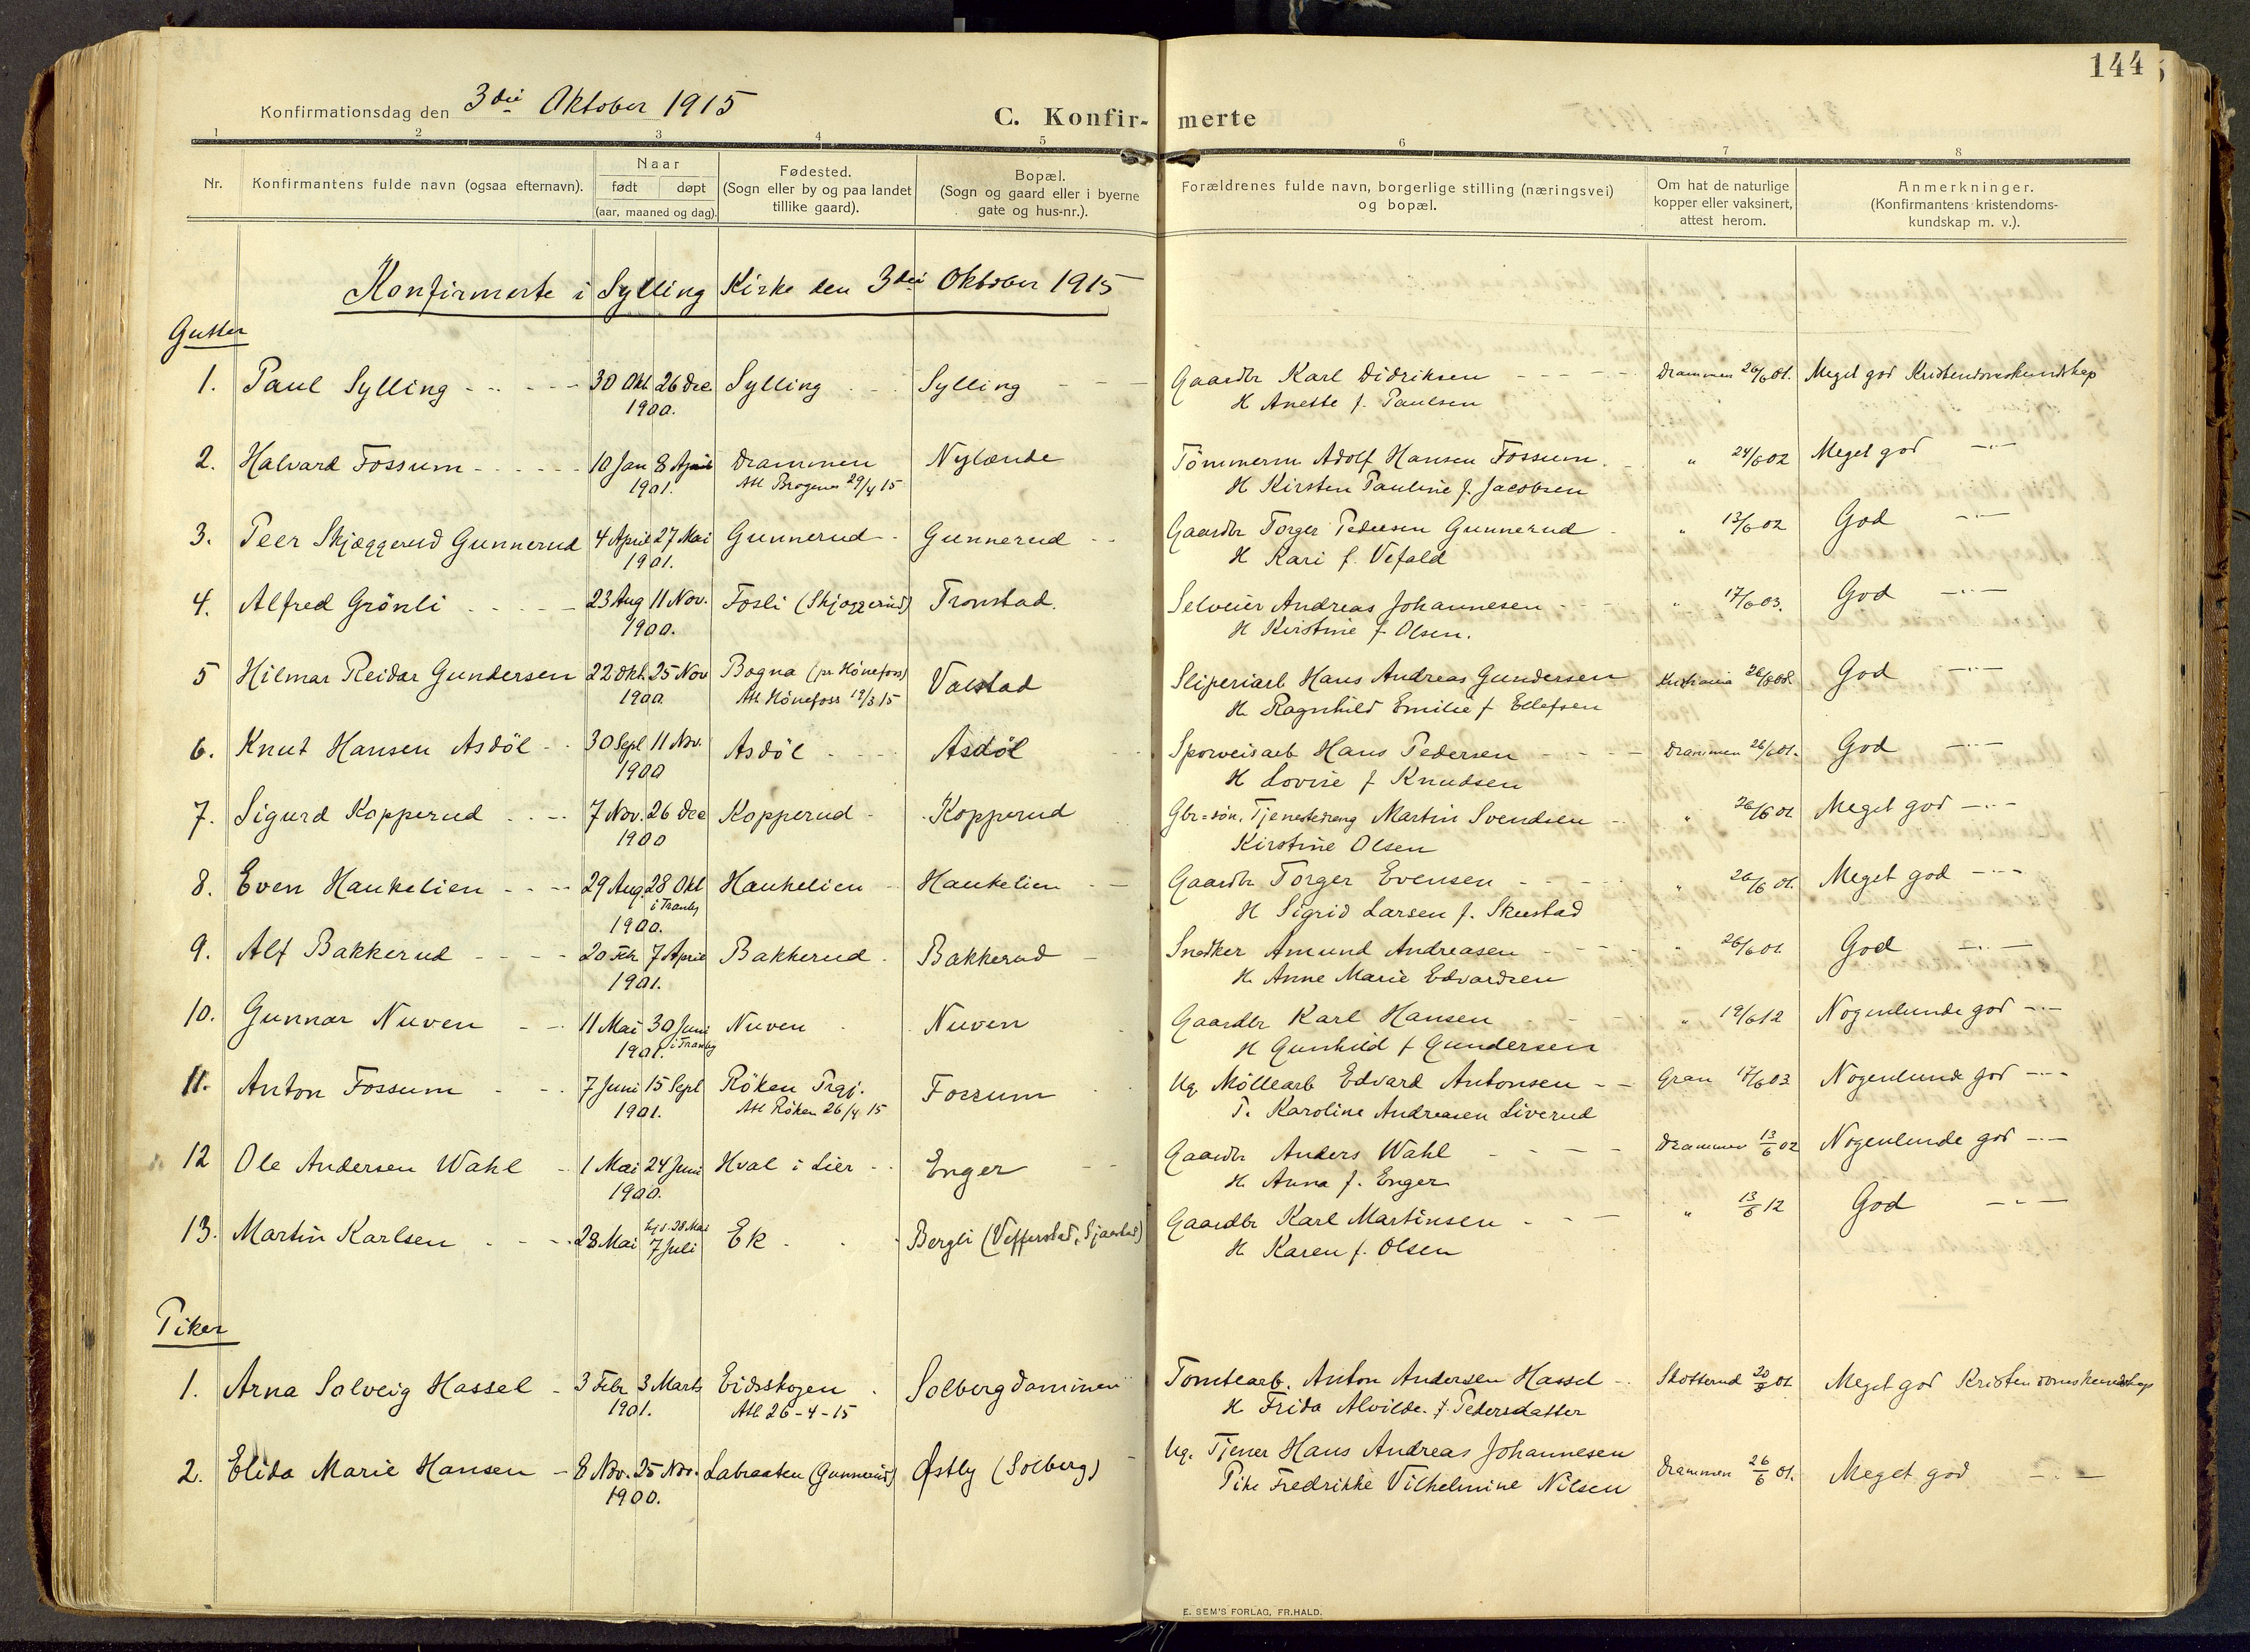 144
Konfirmationsdag den 3die Oktober 1915
C. Konfir- merte
1 2 3 4 5 6 7 8
Nr.
Konfirmantens fulde navn (ogsaa efternavn).
Naar
født døpt
(aar, maaned og dag).
Fødested.
(Sogn eller by og paa landet
tillike gaard).
Bopæl.
(Sogn og gaard eller i byerne
gate og hus-nr.).
Forældrenes fulde navn, borgerlige stilling (næringsvei)
og bopæl.
Om hat de naturlige
kopper eller vaksinert,
attest herom.
Anmerkninger.
(Konfirmantens kristendoms-
kundskap m. v.).
Konfirmerte i Sylling Kirke den 3die Oktober 1915
Gutter
1. Paul Sylling 30 Okt. 26 Dec Sylling Sylling Gaardbr Karl Didriksen Drammen 26/6 01. Meget god Kristendomskundskap
1900. H Anette f. Paulsen
2. Halvard Fossum 10 Jan 8 April Drammen Nylænde Tömmerm Adolf Hansen Fossum " 24/6 02 Meget god —"—
1901. Att Bragenes 29/4 15 H Kirsten Pauline f. Jacobsen
3. Peer Skjæggerud Gunnerud 4 April 27 Mai Gunnerud Gunnerud Gaardbr Torger Pedersen Gunnerud " 13/6 02 God —"—
1901. H Kari f. Vefald
4. Alfred Grönli 23 Aug 11 Nov. Fosli (Skjæggerud) Tronstad. Selveier Andreas Johannesen " 17/6 03. God —"—
1900. H Kirstine f Olsen.
5 Hilmar Reidar Gundersen 22 Okt. 25 Nov Bogna (pr Hönefoss) Valstad Sliperiarb Hans Andreas Gundersen Kristiania God —"—
1900. Att Hönefoss 19/3 15 H. Ragnhild Emilie f Ellefsen
6. Knut Hansen Asdöl 30 Sept 11 Nov. Asdöl Asdöl Sporveisarb Hans Pedersen Drammen 26/6 01. God —"—
1900 H Lovise f Knudsen
7. Sigurd Kopperud 7 Nov. 26 Dec Kopperud Kopperud Gbr=sön, Tjenestedreng Martin Svendsen " 26/6 01 Meget god —"—
1900 Kirstine Olsen
8. Even Haukelien 29 Aug. 28 Okt Haukelien Haukelien Gaardbr Torger Evensen " 26/6 01. Meget god —"—
i Tranby
1900. H Sigrid Larsen f. Skustad
9. Alf Bakkerud 20 Febr 7 April Bakkerud Bakkerud Snedker Amund Andreasen " 26/6 01 God —"—
1901. H. Anne Marie Edvardsen
10. Gunnar Nuven 11 Mai 30 Juni Nuven Nuven Gaardbr Karl Hansen " 19/6 12 Nogenlunde god —"—
1901. i Tranby H Gunhild f Gundersen
11. Anton Fossum 7 Juni 15 Sept Röken Prgj. Fossum Ug. Möllearb Edvard Antonsen Gran 17/6 03 Nogenlunde god —"—
1901. Att Röken 26/4 15 P. Karoline Andreasen Liverud
12 Ole Andersen Wahl 1 Mai 24 Juni Hval i Lier Enger Gaardbr Anders Wahl Drammen 13/6 02 Nogenlunde god —"—
1900. H. Anna f. Enger
13. Martin Karlsen 28 Mai 7 Juli Ek Bergli (Vefferstad, Sjaastad) Gaardbr Karl Martinsen " 13/6 12 God —"—
H. Karen f. Olsen
Piker
1. Arna Solveig Hassel 3 Febr 3 Marts Eidsskogen Solbergdammen Tomtearb. Anton Andersen Hassel Skotterud 20/8 01 Meget god Kristendomskundskap
1901. Att 26-4-15 H. Frida Alvilde. f. Pedersdatter
2. Elida Marie Hansen 8 Nov. 25 Nov. Labraaten (Gunnerud) Østby (Solberg) Ug. Tjener Hans Andreas Johannesen Drammen 26/6 01. Meget god —"—
1900. Pike Fredrikke Vilhelmine Nilsen
E. SEM'S FORLAG, FR.HALD.